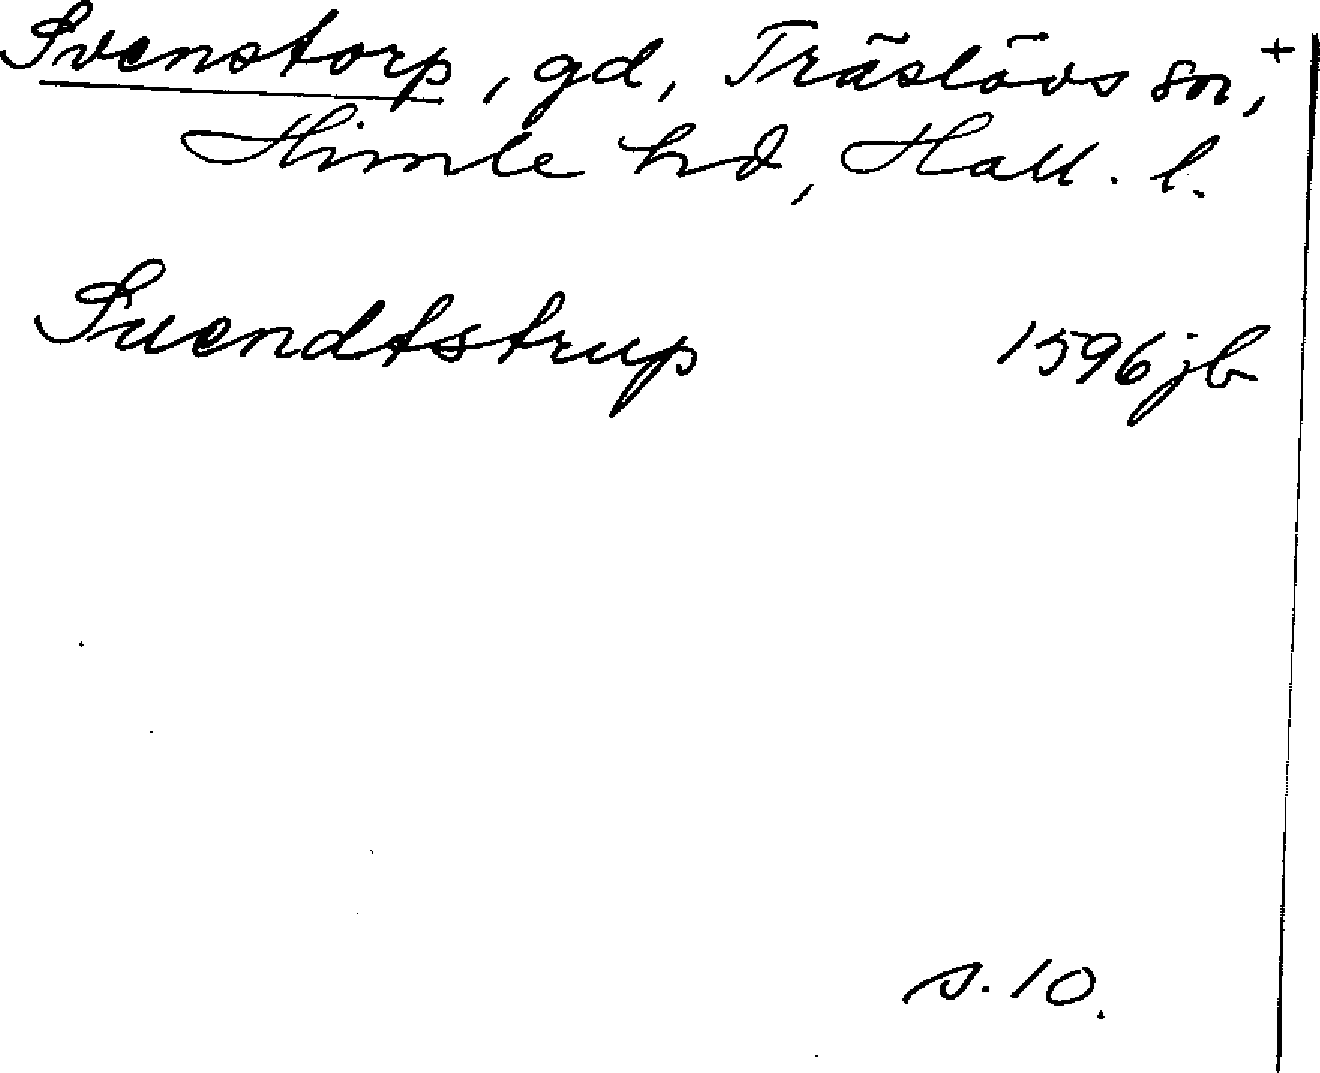 Svenstorp, gd, Träslövs sn,+
Himle hd, Hall. l.
Suendtstrup 1596 jb
s. 10.